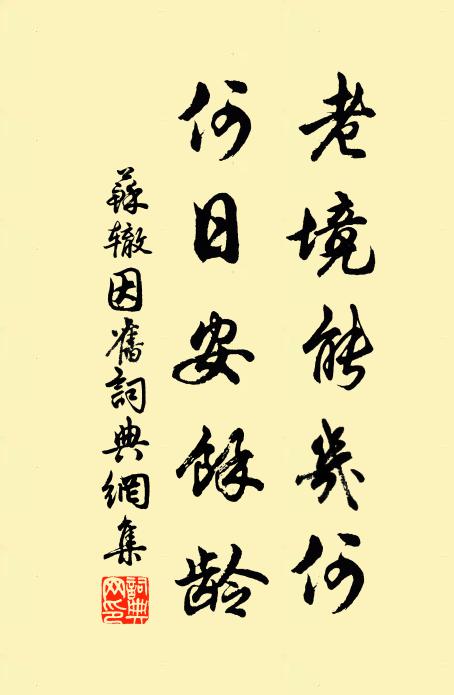 老境能幾何
何日安餘龄
蘇辙因舊詞典網集
詞典
网印